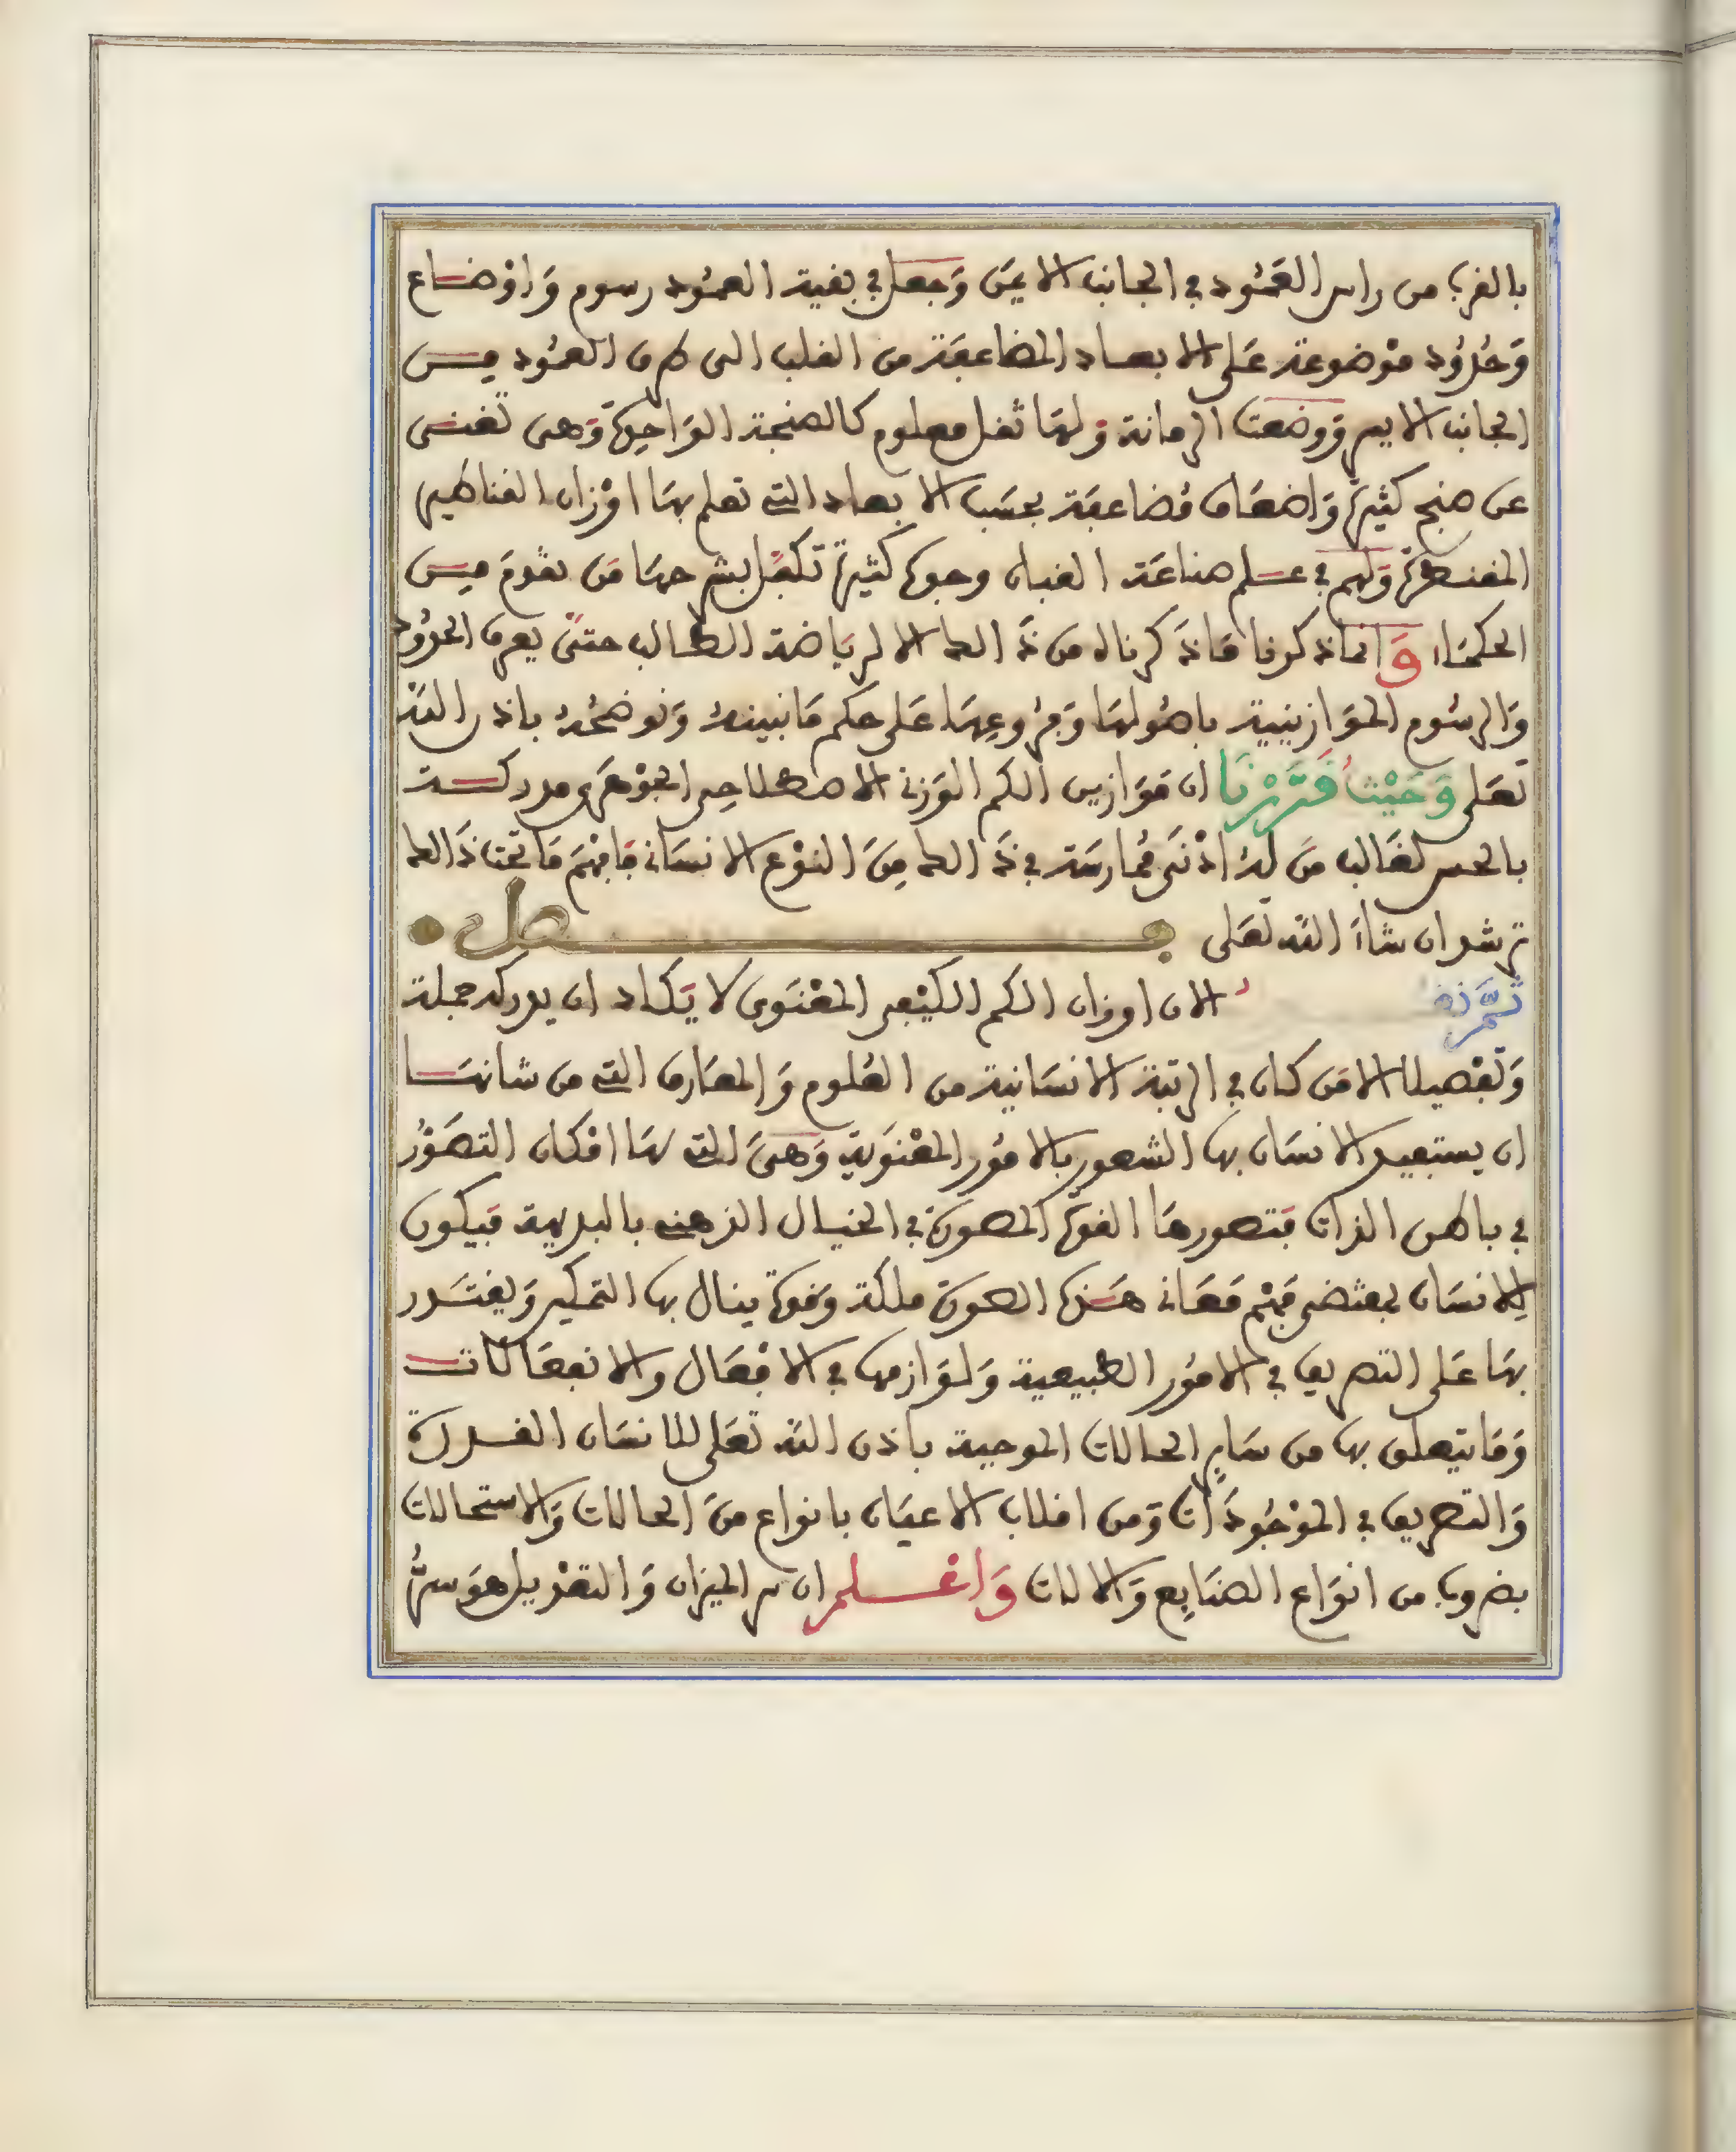 بالقرب من راس العَمُود في الجانب الايمَن وَجعل في بقية العمُود رسوم وَاوْضاع
وَحُدُود مَوْضوعة عَلى الابعاد المضاعفَة من القلب الى طرف العمُود من
الجانب الايسر وَوضعت الرمانة وَلهَا ثقل معلوم كالصنجة الوَاحدة وَهى تغنى
عن صنج كثيرة وَاضعَاف مُضاعفَة بحسَب الابعاد التى تعلم بهَا اوْزان القناطير
المقنطرة وَلهم في عـلم صناعَة القبان وجوه كثيرة تكفل بشرحهَا مَن تقدمَ من
الحكمَاء وَانما ذكرنا مَا ذَكرناه من ذَالك الا لريَاضة الطالب حتىَ يعرف الحدُود
وَالرسُوم الموَازينية باصُولهَا وَفرُوعِهَا عَلى حكم مَا نبينهُ وَنوضحُه باذن اللَه
تعَلى وَحَيْثُ قَرَّرْنَا ان مَوَازين الكم الوَزنى الاصطلاحِى الجوْهَرى مدركـة
بالحس لغَالب مَن لهُ ادْنَى مُمارسَة في ذَالك مِنَ النوْع الانسَانى فافهَم مَا تحت ذَالك
ترشد ان شاءَ اللَه تعَلى فصل
ثمَّ نقُول الان اوزان الكم الكيْفى المعْنَوى لا يَكاد ان يدركه جملة
وَتفْصيلا الا مَن كان في الرتبة الانسَانية من العُلوم وَالمعَارف التى من شانهَـا
ان يستفيد الانسَان بها الشعور بالامُور المعْنَوية وَهىَ التى لهَا امْكان التصَوُّر
في باطن الذات فتصورهَا القوة المصورة في الخيال الذهنى بالبديهة فيكون
للانسَان بمقتضى فهْم مَعَانى هَـذه الصورة ملكة وَقوة ينال بها التمكين وَيقتـدر
بهَا عَلى التصريف في الامُور الطبيعية وَلوَازمها في الافْعَال والانفعَالاتـ
وَمَا يتعلق بها من سَاير الحالات الموجبة باذن اللَه تعَلى للانسَان القـدرة
وَالتصريف في الموْجُودَات وَمن اقلاب الاعيَان بانواع منَ الحالات وَالاستحالات
بضروب من انوَاع الصنَايع وَالالات وَاعْـلم ان سر الميزان وَالتعْديل هوَ سرُّ